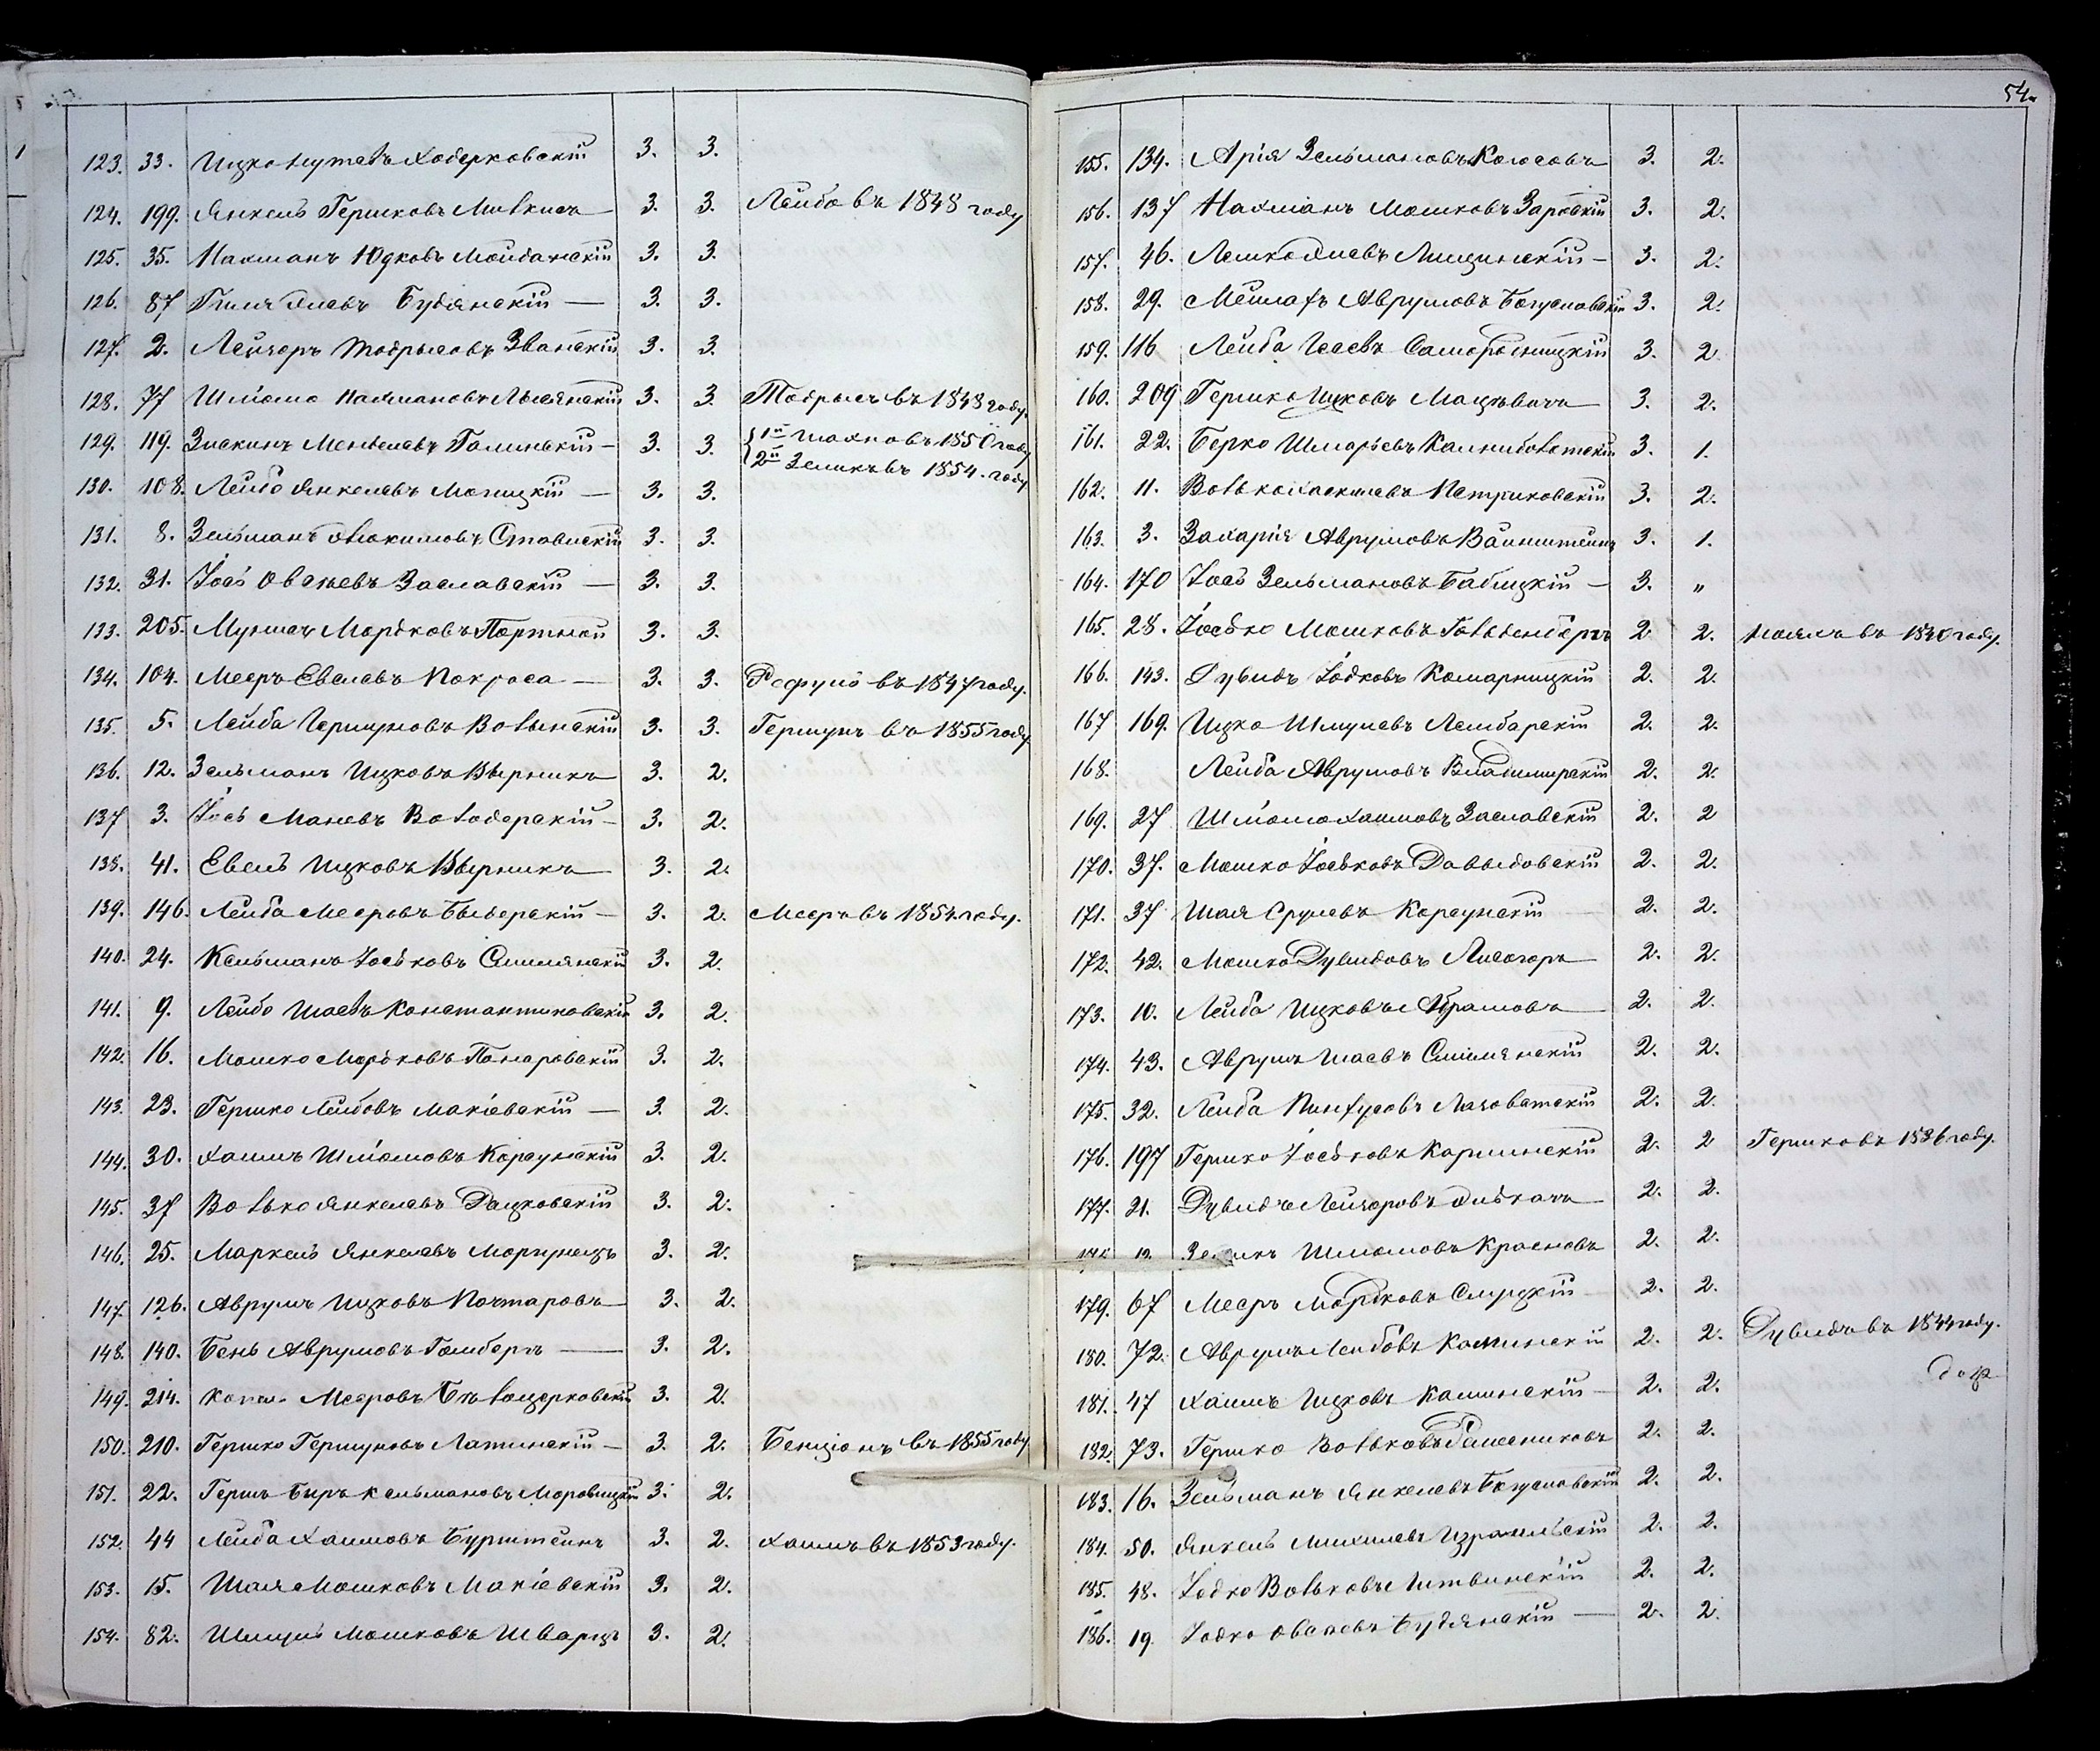 123. 33. Ицко Нутовъ Ходорковскій 3. 3.
124. 199. Янкель Гершковъ 3. 3. Лейба въ 1848 году
125. 35. Нахманъ Юдковъ Мойданскій 3. 3.
126. 87 Гиля Элевъ Будянскій — 3. 3.
127. 2. Лейзоръ Тодрысовъ Званскій 3. 3.
128. 77 Шліомо Нахмановъ Лысянскій 3. 3. Тодрысъ въ 1848 году.
129. 119. Зискинъ Менделевъ Галинскій — 3. 3. 1й Шахно въ 1850 году
2й Зеликъ въ 1854. году
130. 108. Лейба Янкелевъ Молицкій — 3. 3.
131. 8. Зельманъ Ставискій 3. 3.
132. 31. Іось Овсѣевъ Заславскій — 3. 3.
133. 205. Мунишъ Мордковъ Портной 3. 3.
134. 104. Мееръ Евелевъ Покраса — 3. 3. Рефуль въ 1847 году.
135. 5. Лейба Гершуновъ Волынскій 3. 3. Гершунъ въ 1855 году.
136. 12. Зельманъ Ицковъ Вырникъ 3. 2.
137 3. Іось Маневъ Володарскій — 3. 2.
138. 41. Евель Ицковъ Вырникъ 3. 2.
139. 146. Лейба Мееровъ Быберскій — 3. 2. Мееръ въ 1854 году.
140. 24. Кельманъ Іоськовъ Смилянскій 3. 2.
141. 9. Лейба Шаевъ Константиновскій 3. 2.
142. 16. Мошко Мордковъ Понаровскій 3. 2.
143. 23. Гершко Лейбовъ Макіевскій — 3. 2.
144. 30. Хаимъ Шліомовъ Корсунскій 3. 2.
145. 37 Волько Янкелевъ Дацковскій 3. 2.
146. 25. Маркель Янкелевъ Моргунецъ 3. 2.
147. 126. Аврумъ Ицковъ Почтаровъ 3. 2.
148. 140. Бень Аврумовъ Гамбергъ — 3. 2.
149. 214. Копель Мееровъ Бѣлоцерковскій 3. 2.
150. 210. Гершко Гершуновъ Латинскій — 3. 2. Бенціонъ въ 1855 году
151. 22. Гершъ Беръ Кельмановъ Моровицкій 3. 2.
152. 44 Лейба Хаимовъ Бурштейнъ 3. 2. Хаимъ въ 1853 году.
153. 15. Шая Мошковъ Макіевскій 3. 2.
154. 82. Шмуль Мошковъ Шварцъ 3. 2.
54.
155. 134. Арія Зельмановъ 3. 2.
156. 137 Нахманъ Мошковъ Зарскій 3. 2.
157. 46. Лешко Элевъ Лищинскій — 3. 2.
158. 29. Мейлахъ Аврумовъ Богуславскій 3. 2.
159. 116 Лейба Исаевъ Самородницкій 3. 2.
160. 209 Гершко Ицковъ Мацѣвичъ 3. 2.
161. 22. Берко Шмарьевъ Калниболотскій 3. 1.
162. 11. Волько Хаскелевъ Петриковскій 3. 2.
163. 3. Захарія Аврумовъ Вайнштейнъ 3. 1.
164. 170 Іось Зельмановъ Бабицкій — 3. "
165. 28. Іосько Мошковъ Гольденбергъ 2. 2. въ 1840 году.
166. 143. Дувидъ Іодковъ Комарницкій 2. 2.
167 169. Ицко Шмулевъ Лембарскій 2. 2.
168. Лейба Аврумовъ Владимирскій 2. 2.
169. 27 Шліома Хаимовъ Заславскій 2. 2
170. 37. Мошко Іоськовъ Давыдовскій 2. 2.
171. 37 Шая Срулевъ Корсунскій 2. 2.
172. 42. Мошко Дувидовъ Лисогоръ 2. 2.
173. 10. Лейба Ицковъ Абрамовъ 2. 2.
174. 43. Аврумъ Шаевъ Смилянскій 2. 2.
175. 32. Лейба Пинхусовъ Лазоватскій 2. 2.
176. 197 Гершко Іоськовъ Каршинскій 2. 2 Гершко въ 1836 году.
177. 21. Дувидъ Лейзоровъ 2. 2.
Зеликъ Шліомовъ Красновъ 2. 2.
179. 67 Мееръ Мордковъ Слуцкій 2. 2.
180. 72. Аврумъ Лейбовъ Каминскій 2. 2. Дувидъ въ 1844 году.
181. 47 Хаимъ Ицковъ Каминскій — 2. 2.
182. 73. Гершко Вольковъ 2. 2.
183. 16. Зельманъ Янкелевъ Богуславскій 2. 2.
184. 50. Янкель Михилевъ Израильскій 2. 2.
185. 48. Іодко Вольковъ Литвинскій 2. 2.
186. 19. Іодко Овсѣевъ Будянскій — 2. 2.